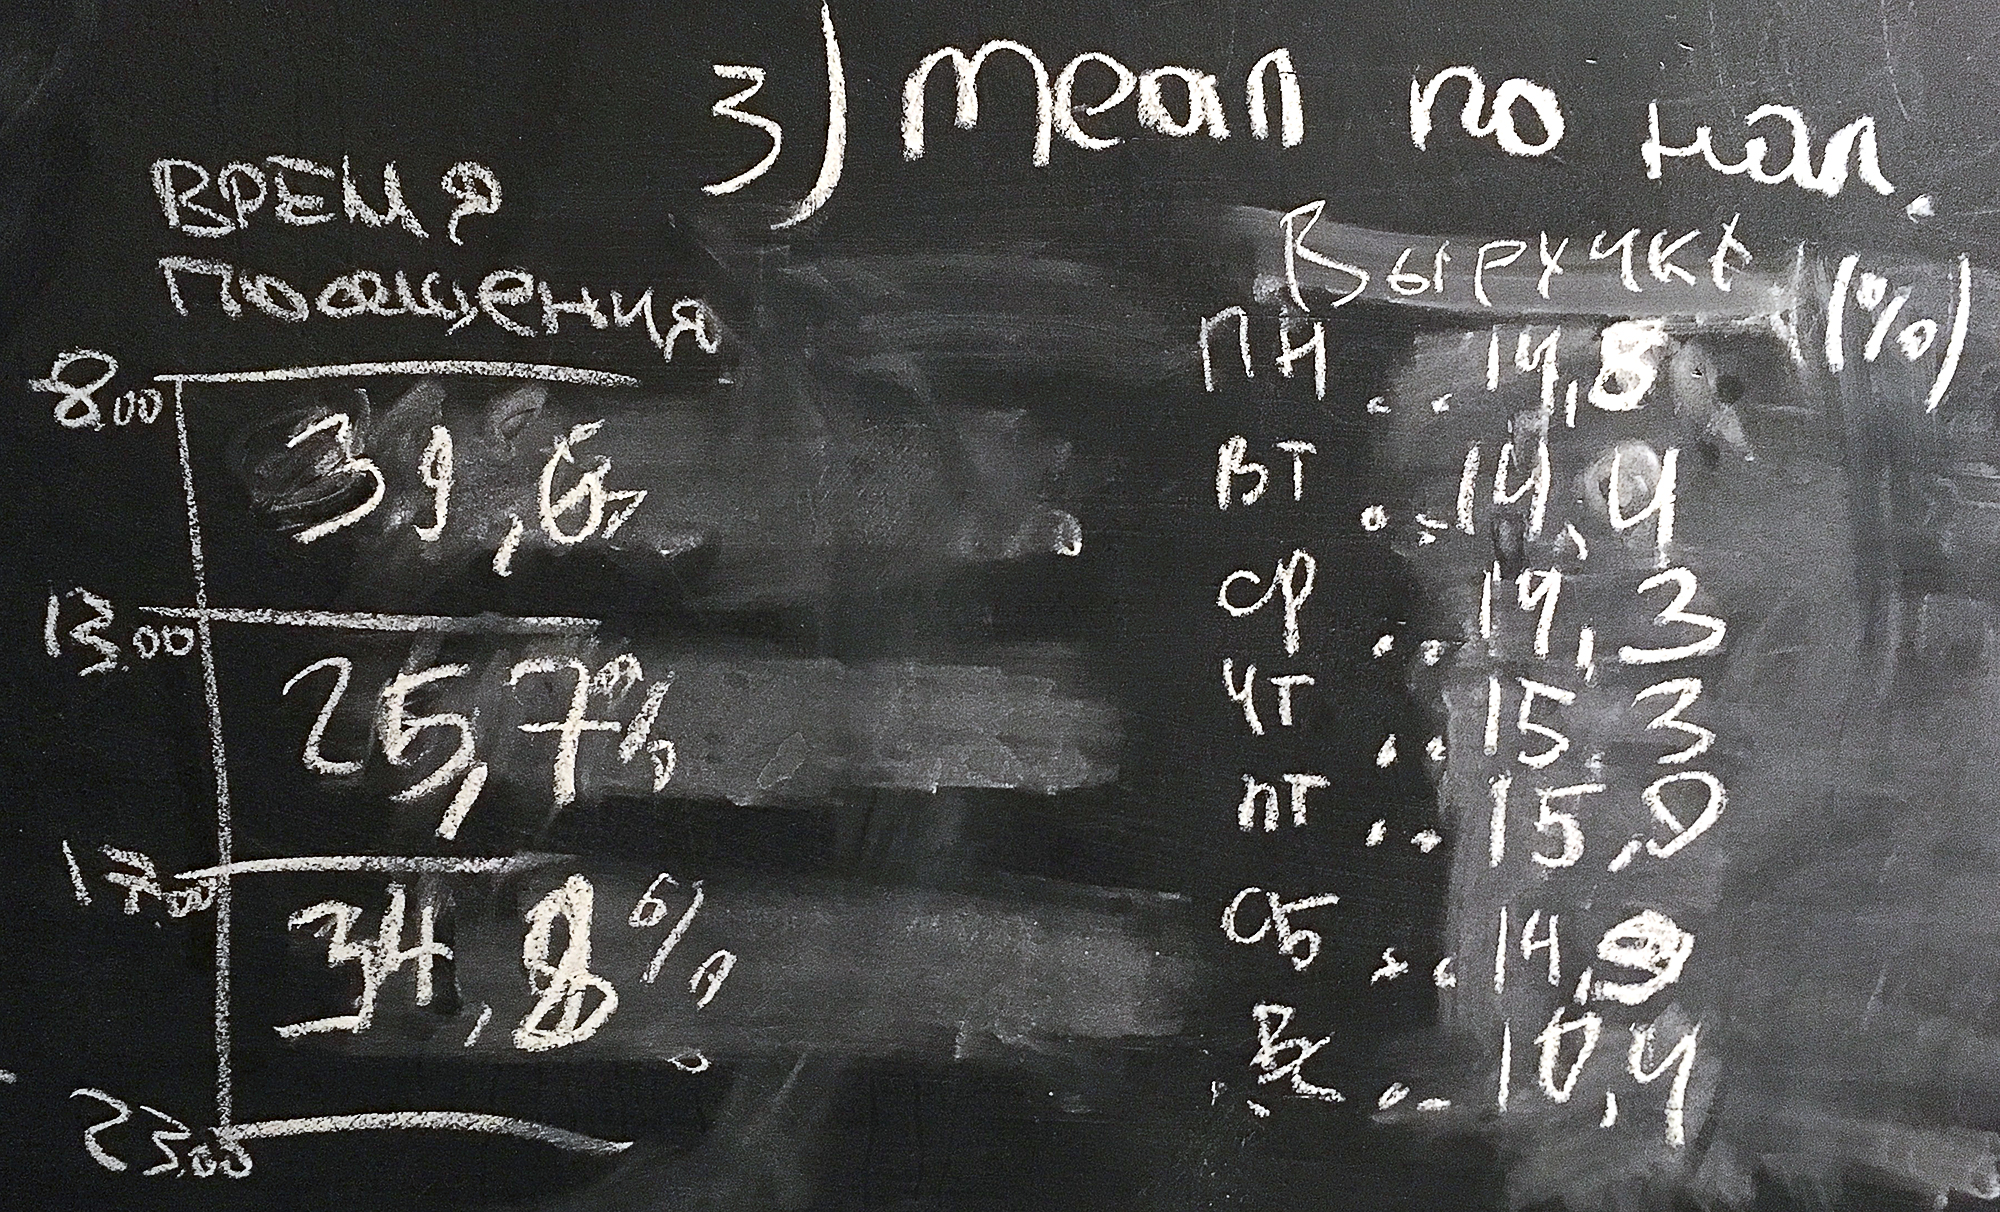 3) теап по нап.
ВРЕМЯ
Посещения
8.00
39,6%
13.00
25,7%
17.00
34,8%
23.00
Выручка (%)
ПН .. 14,8
ВТ .. 14,4
СР .. 19,3
ЧТ .. 15.3
ПТ .. 15,0
СБ .. 14,9
Вс .. 10,4